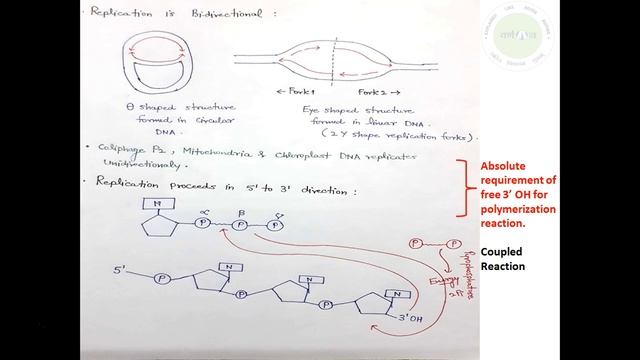 Replication is Bidirectional :
← Fork1 Fork2 →
θ shaped structure
formed in Circular
DNA.
Eye shaped structure
formed in linear DNA.
(2 Y shape replication forks).
• Coliphage P2, Mitochondria & Chloroplast DNA replicates
Unidirectionaly.
• Replication proceeds in 5' to 3' direction :
N
α β γ
P P P
P P
Pyrophosphatase
Energy
2Pi
5'
P N P N P N
3'OH
Absolute
requirement of
free 3' OH for
polymerization
reaction.
Coupled
Reaction